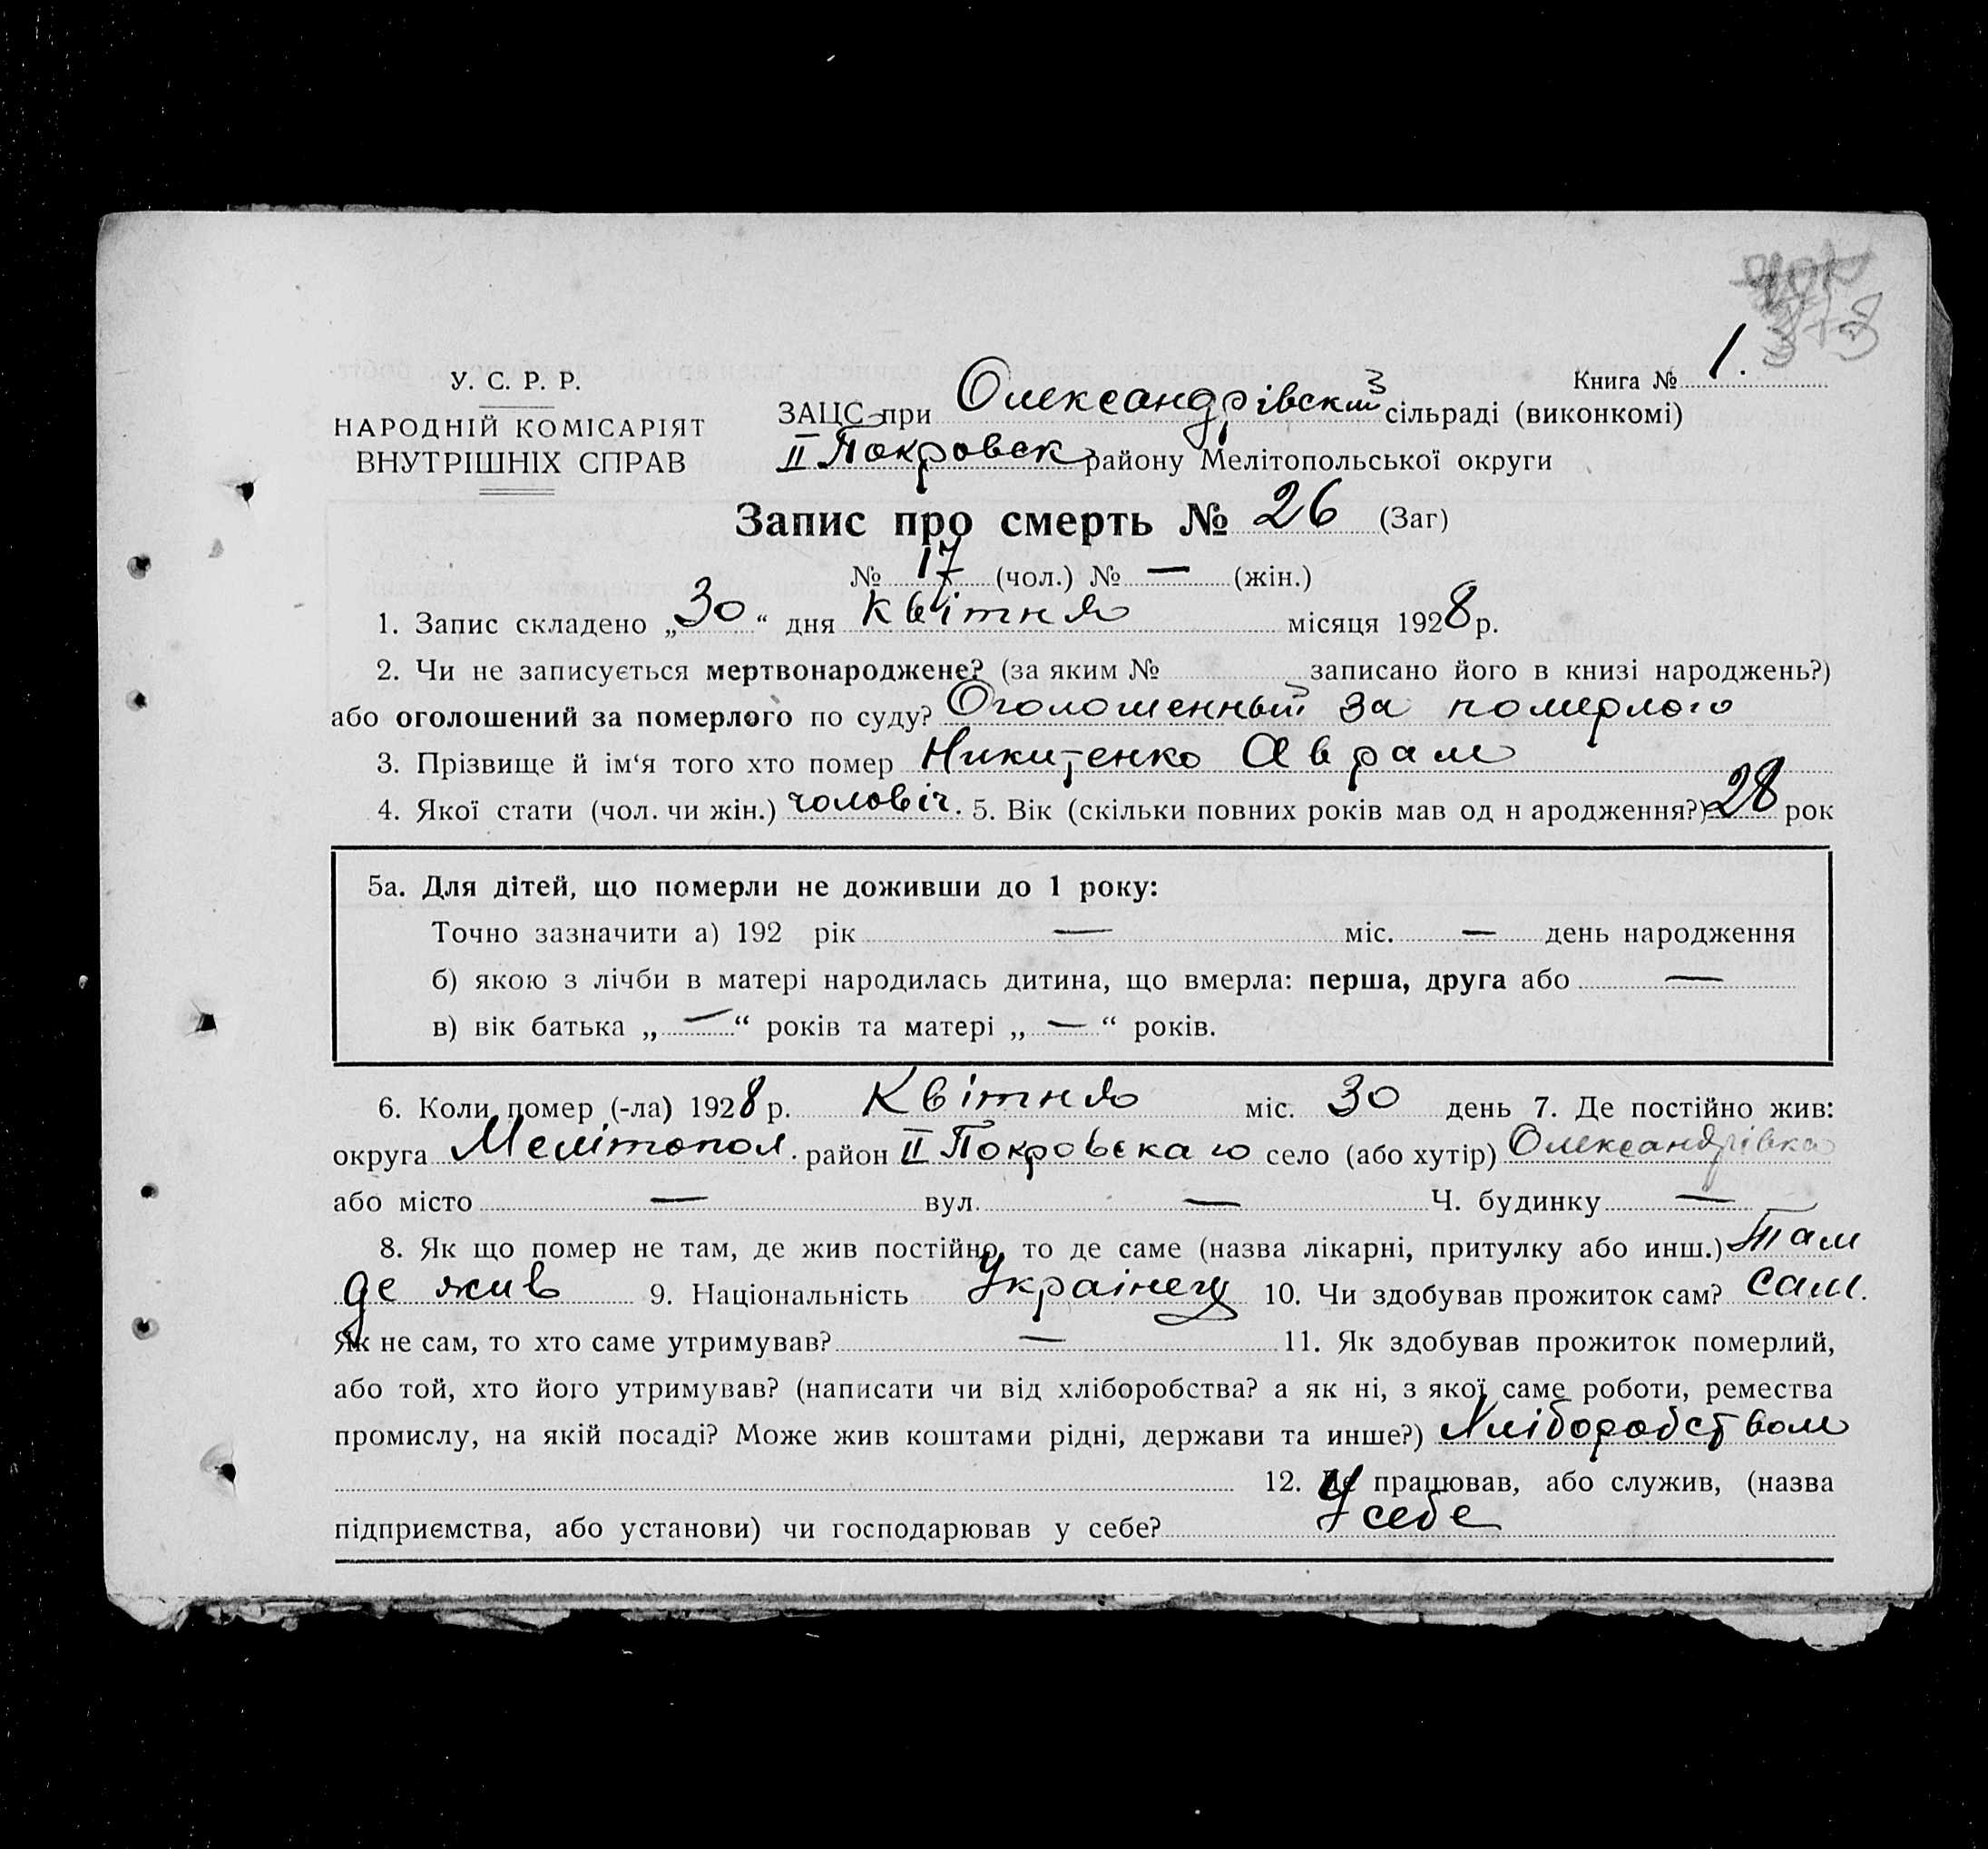 У. С. Р. Р.
НАРОДНІЙ КОМІСАРІЯТ
ВНУТРІШНІХ СПРАВ
Книга № 1.
ЗАЦС при Олександрівский сільраді (виконкомі)
II Покровск району Мелітопольської округи
Запис про смерть № 26 (Заг)
№ 17 (чол.) № — (жін.)
1. Запис складено „30“ дня Квітня місяця 1928 р.
2. Чи не записується мертвонароджене? (за яким № записано його в книзі народжень?)
або оголошений за померлого по суду? Оголошенный за померлого
3. Прізвище й ім‘я того хто помер Никитенко Аврам
4. Якої стати (чол. чи жін.) чоловіч. 5. Вік (скільки повних років мав од н ародження?) 28 рок
5а. Для дітей, що померли не доживши до 1 року:
Точно зазначити а) 192 рік — міс. — день народження
б) якою з лічби в матері народилась дитина, що вмерла: перша, друга або —
в) вік батька „—“ років та матері „—“ років.
6. Коли помер (-ла) 1928 р. Квітня міс. 30 день 7. Де постійно жив:
округа Мелітопол. район II Покровскаго село (або хутір) Олександрівка
або місто — вул. — Ч. будинку —
8. Як що помер не там, де жив постійно, то де саме (назва лікарні, притулку або инш.) Там
де жив 9. Національність Українец 10. Чи здобував прожиток сам? Сам.
Як не сам, то хто саме утримував? — 11. Як здобував прожиток померлий,
або той, хто його утримував? (написати чи від хліборобства? а як ні, з якої саме роботи, ремества
промислу, на якій посаді? Може жив коштами рідні, держави та инше?) Хліборобством
12. Де працював, або служив, (назва
підприємства, або установи) чи господарював у себе? У себе